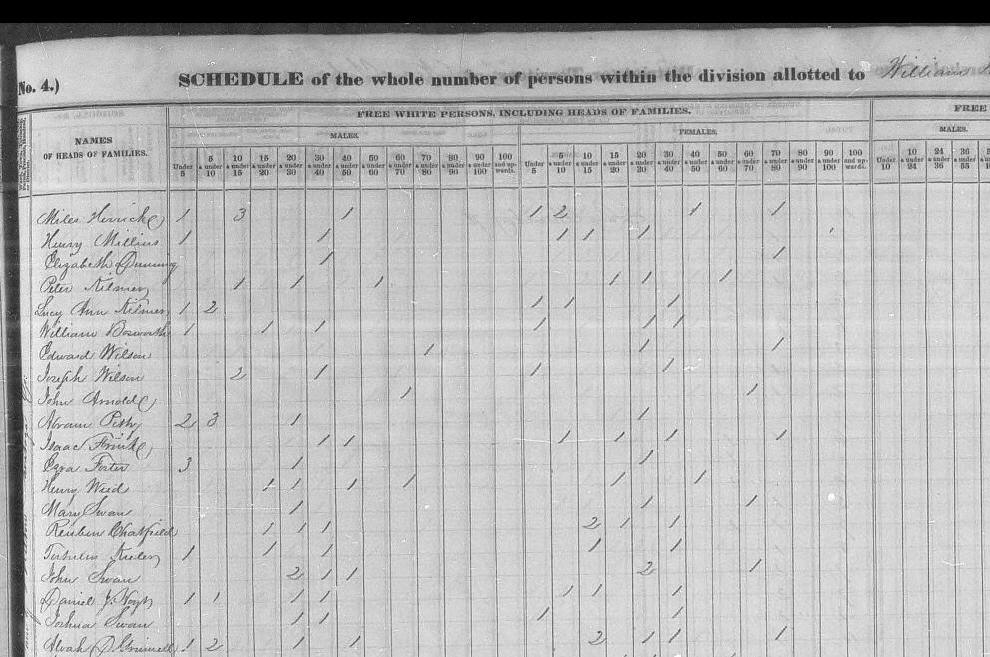 No. 4.) SCHEDULE of the whole number of persons within the division allotted to William
FREE WHITE PERSONS, INCLUDING HEADS OF FAMILIES. FREE
NAMES OF HEADS OF FAMILIES. MALES. FEMALES. MALES.
Under 5 5 & under 10 10 & under 15 15 & under 20 20 & under 30 30 & under 40 40 & under 50 50 & under 60 60 & under 70 70 & under 80 80 & under 90 90 & under 100 100 and upwards. Under 5 5 & under 10 10 & under 15 15 & under 20 20 & under 30 30 & under 40 40 & under 50 50 & under 60 60 & under 70 70 & under 80 80 & under 90 90 & under 100 100 and upwards. Under 10 10 & under 24 24 & under 36 36 & under 55
Miles Herrick 1 3 1 1 2 1 1
Henry Millius 1 1 1 1 1 1
Elizabeth Dunning 1 1
Peter Kilmer 1 1 1 1 1 1
Lucy Ann Kilmer 1 2 1 1 1
William Bosworth 1 1 1 1 1 1
Edward Wilson 1 1 1
Joseph Wilson 2 1 1 1
John Arnold 1 1
Abram 2 3 1 1
Isaac 1 1 1 1 1 1
Ezra Foster 3 1 1
Henry Weed 1 1 1 1 1 1
Mary Swan 1 1 1
Reuben Chatfield 1 1 1 2 1 1
1 1 1 1 1
John Swan 2 1 1 2 1
Daniel 1 1 1 1 1 1 1
Joshua Swan 1 1 1 1
Alvah Grinnell 1 2 1 1 2 1 1 1